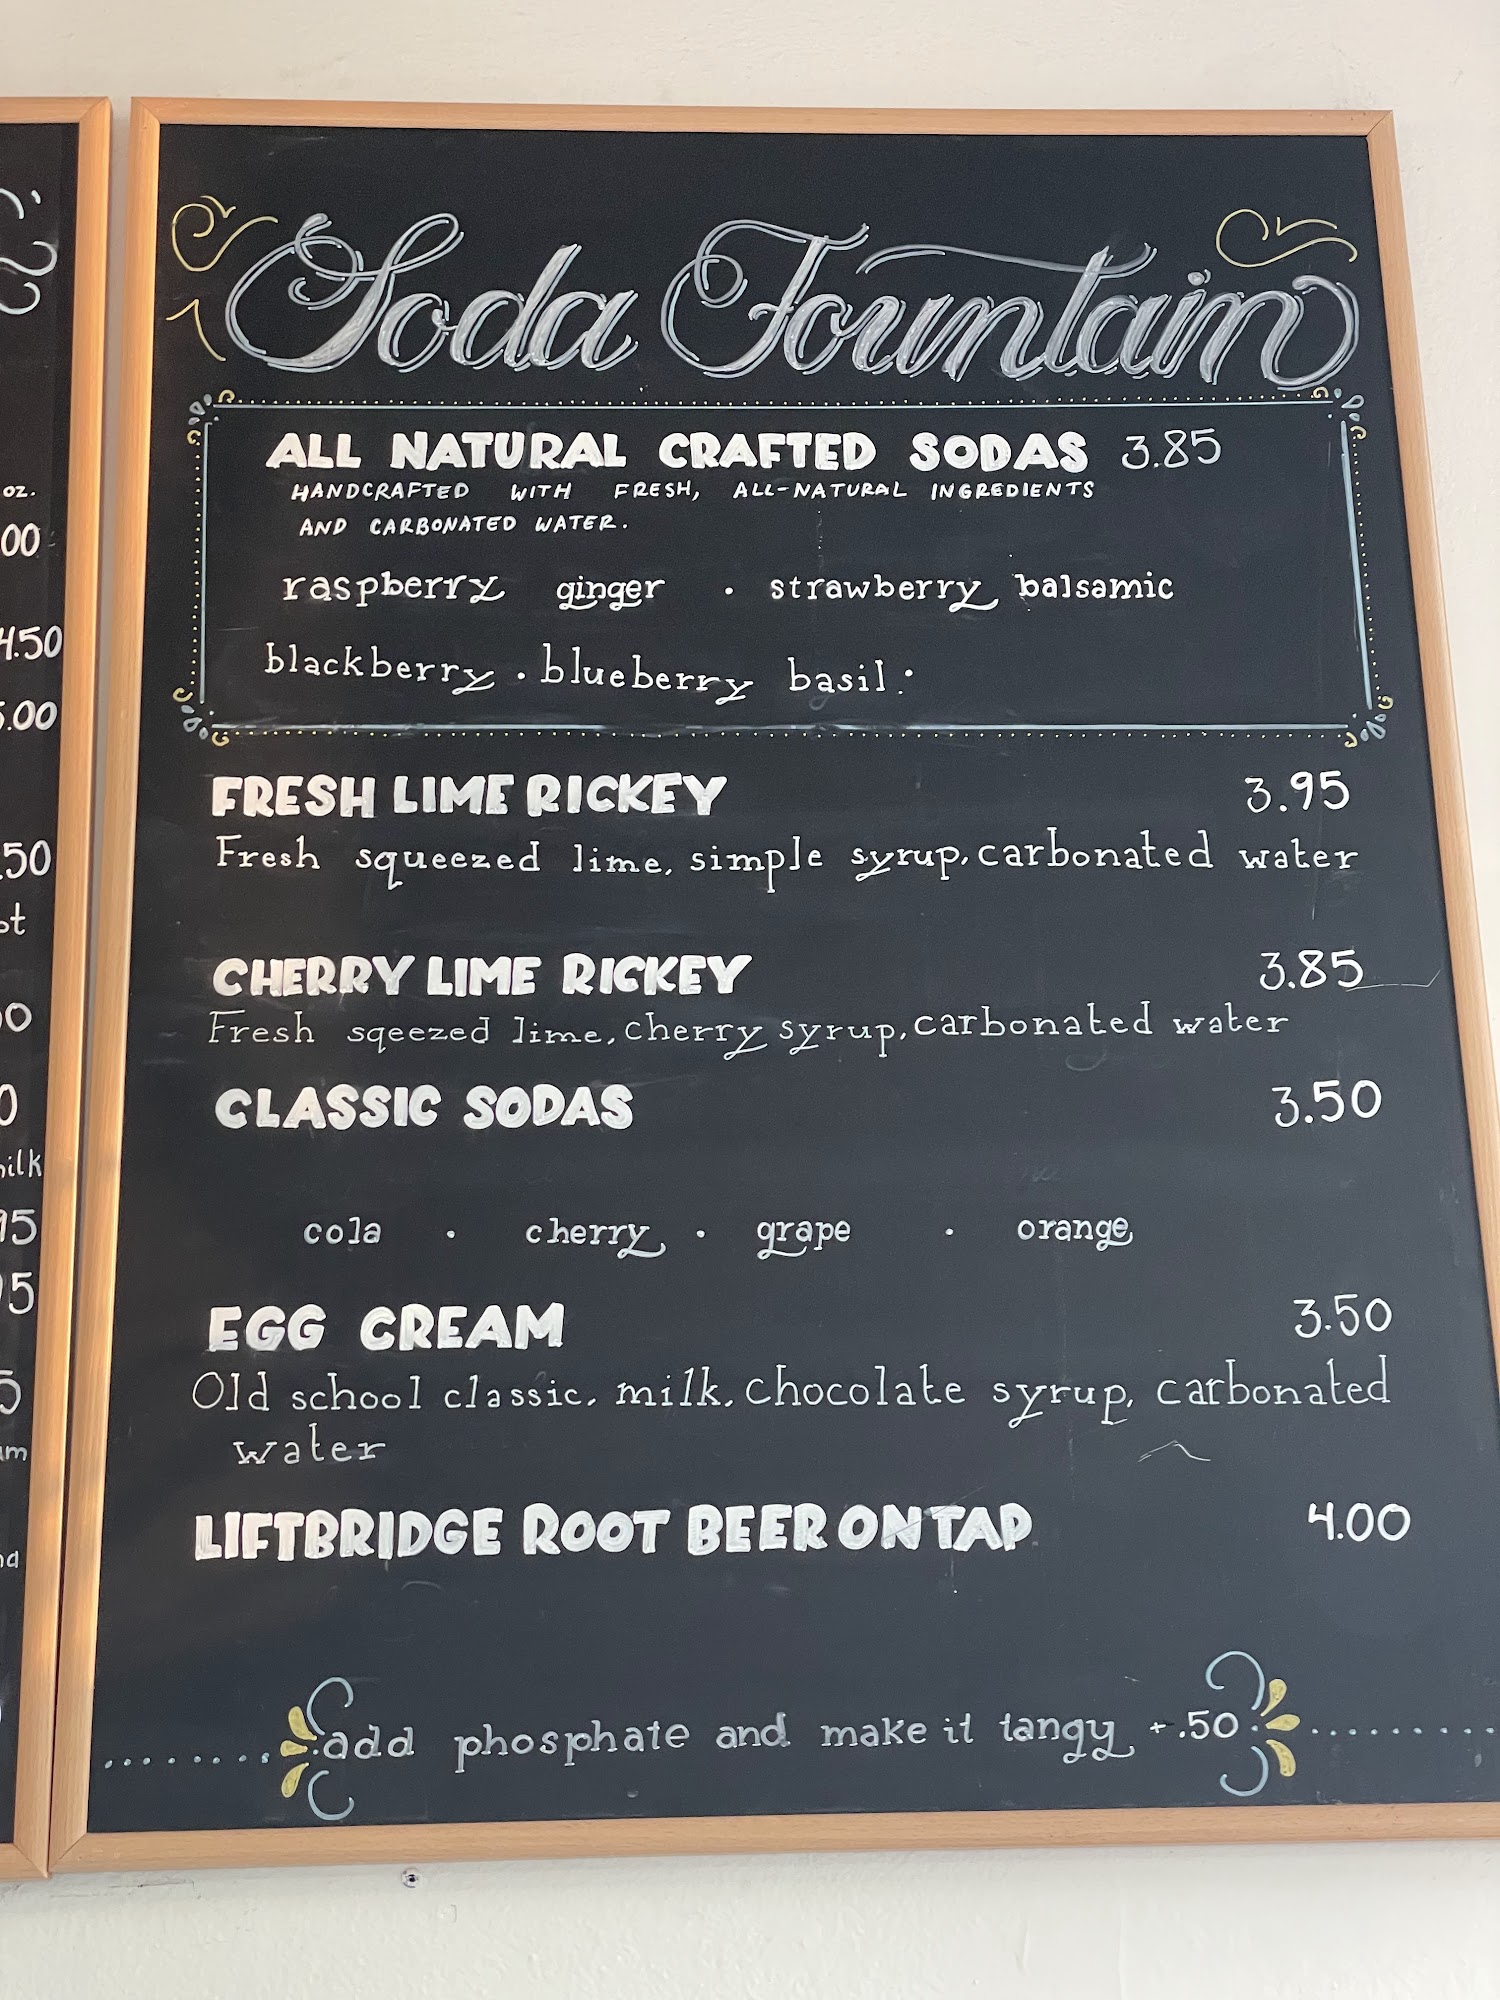 Soda Fountain
ALL NATURAL CRAFTED SODAS 3.85
HANDCRAFTED WITH FRESH, ALL-NATURAL INGREDIENTS
AND CARBONATED WATER.
raspberry ginger · strawberry balsamic
blackberry · blueberry basil
FRESH LIME RICKEY 3.95
Fresh squeezed lime, simple syrup, carbonated water
CHERRY LIME RICKEY 3.85
Fresh sqeezed lime, cherry syrup, carbonated water
CLASSIC SODAS 3.50
cola · cherry · grape · orange
EGG CREAM 3.50
Old school classic, milk, chocolate syrup, carbonated
water
LIFTBRIDGE ROOT BEER ON TAP 4.00
add phosphate and make it tangy +.50
oz.
00
4.50
5.00
.50